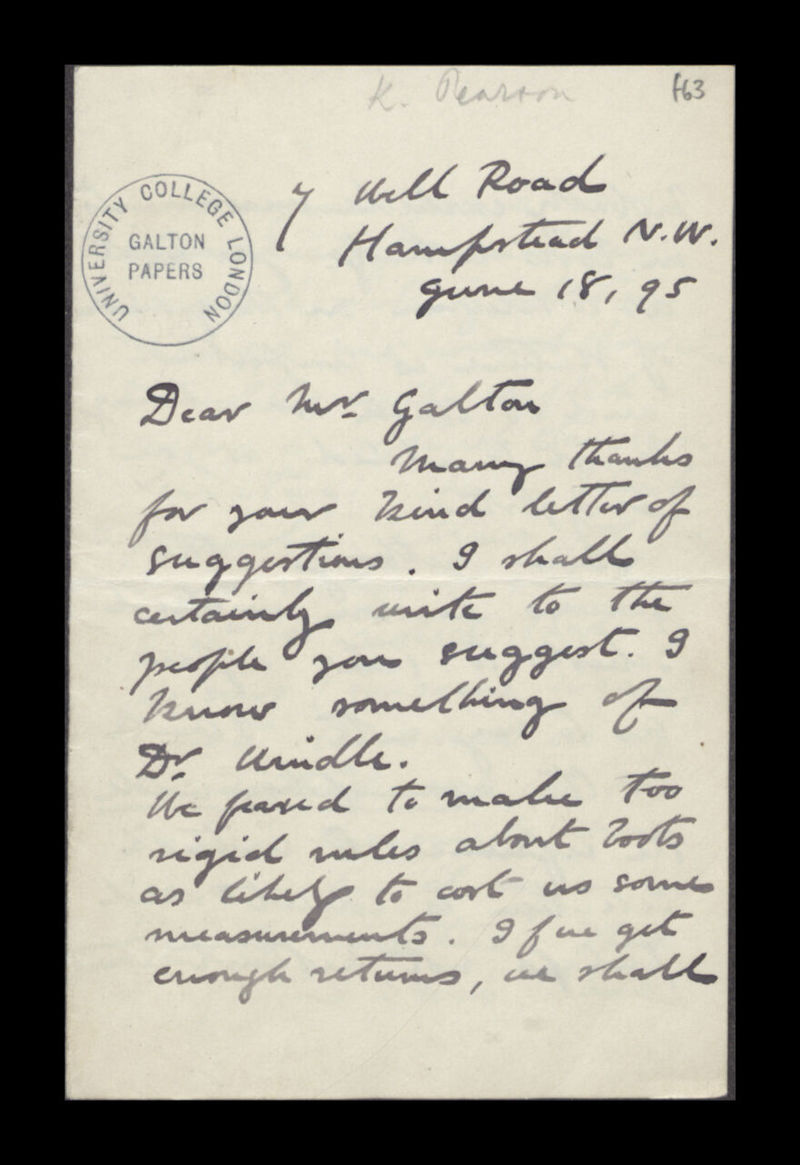 K. Pearson
f63
UNIVERSITY COLLEGE LONDON
GALTON
PAPERS
7 Well Road
Hampstead N.W.
June 18, 95
Dear Mr. Galton
Many thanks
for your kind letter of
suggestions. I shall
certainly write to the
people you suggest. I
know something of
Dr. Windle.
We feared to make too
rigid rules about boots
as likely to cost us some
measurements. If we get
enough returns, we shall